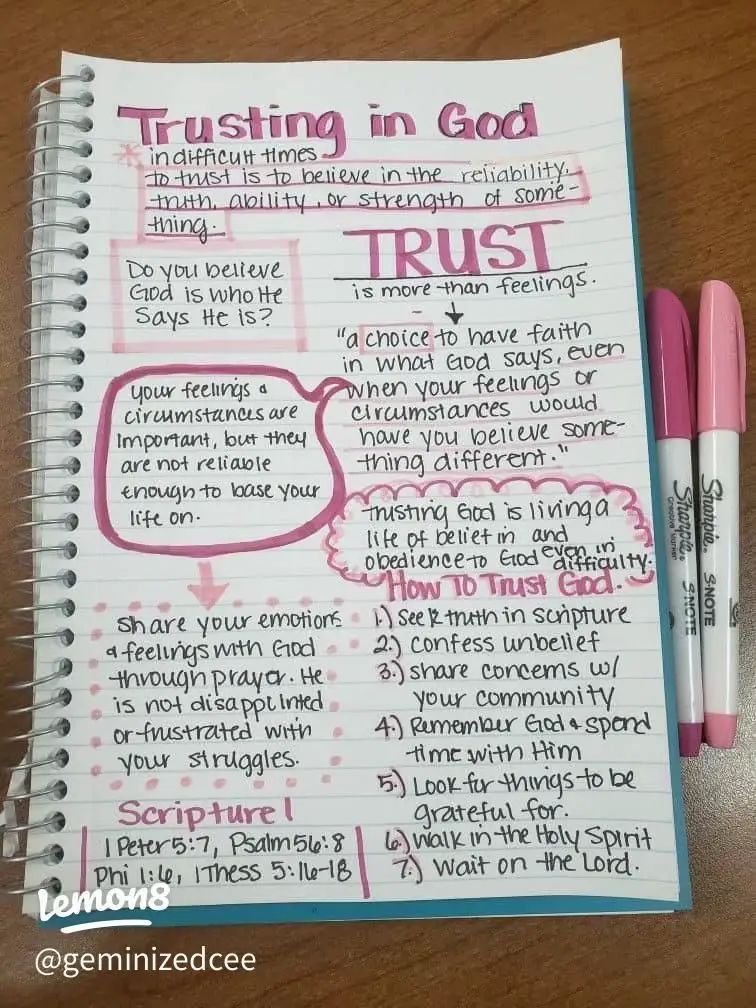 Trusting in God
* in difficult times
to trust is to believe in the reliability,
truth, ability, or strength of some-
thing.
Do you believe
God is who He
Says He is?
TRUST
is more than feelings.
"a choice to have faith
in what God says, even
when your feelings or
circumstances would
have you believe some-
thing different."
Your feelings &
circumstances are
important, but they
are not reliable
enough to base your
life on.
Trusting God is living a
life of belief in and
obedience to God even in
difficulty.
Share your emotions
& feelings with God
through prayer. He
is not disappointed
or frustrated with
your struggles.
How To Trust God.
1.) Seek truth in scripture
2.) Confess unbelief
3.) share concerns w/
your community
4.) Remember God & spend
time with Him
5.) Look for things to be
grateful for.
6.) Walk in the Holy Spirit
7.) Wait on the Lord.
Scripture!
1 Peter 5:7, Psalm 56:8
Phi 1:6, 1 Thess 5:16-18
Sharpie
S·NOTE
Sharpie
S·NOTE
lemon8
@geminizedcee